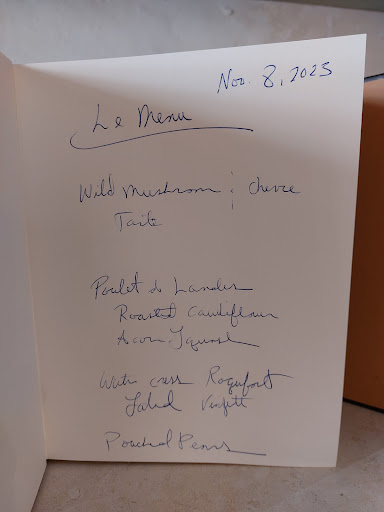 Nov. 8, 2025
Le Menu
Wild Mushroom & Chevre
Tarte
Poulet de Landes
Roasted Cauliflower
Acorn Squash
Water cress Roquefort
Salad
Poached Pears